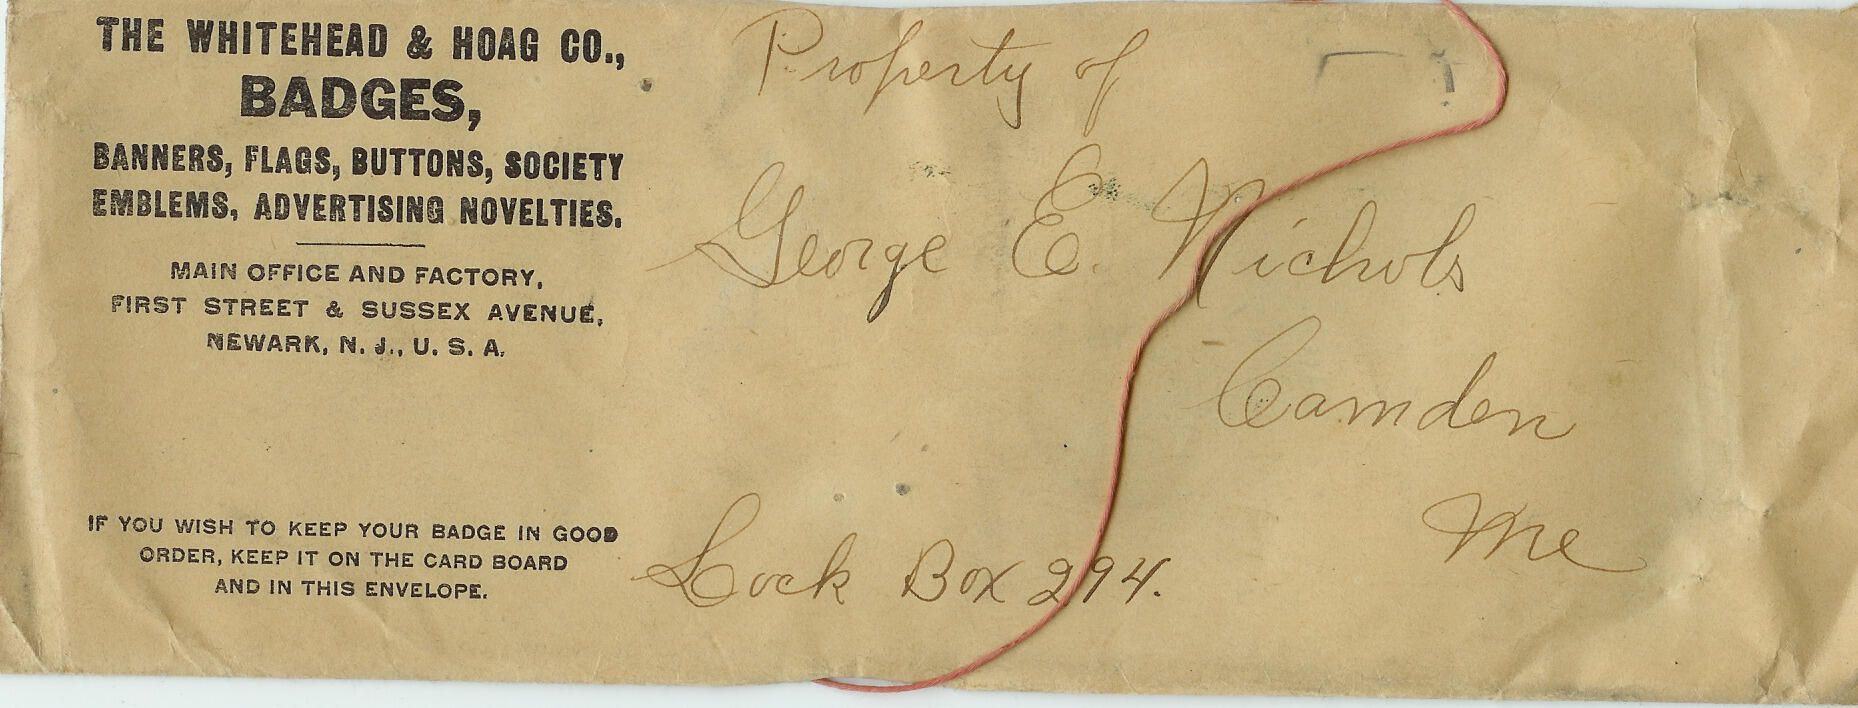 THE WHITEHEAD & HOAG CO.,
BADGES,
BANNERS, FLAGS, BUTTONS, SOCIETY
EMBLEMS, ADVERTISING NOVELTIES.
MAIN OFFICE AND FACTORY,
FIRST STREET & SUSSEX AVENUE,
NEWARK, N. J., U. S. A.
IF YOU WISH TO KEEP YOUR BADGE IN GOOD
ORDER, KEEP IT ON THE CARD BOARD
AND IN THIS ENVELOPE.
Property of
George E. Nichols
Camden
Me
Lock Box 294.